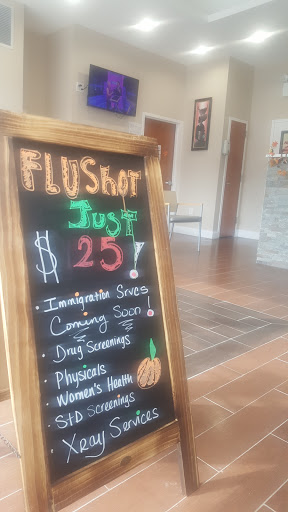 FLUShOT
JUST
$25!
• Immigration Srvcs
Coming Soon!
• Drug Screenings
• Physicals
• Women's Health
• STD Screenings
• Xray Services